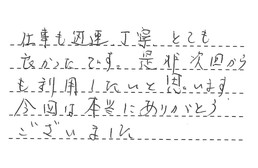 仕事も迅速 丁寧 とても
良かったです。是非次回から
も利用したいと思います
今回は本当にありがとう
ございました